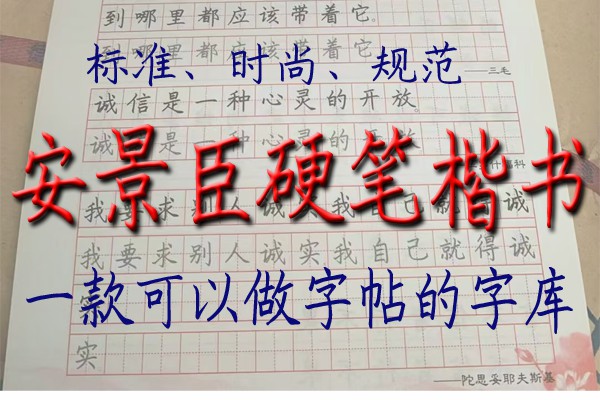 到哪里都应该带着它。
到哪里都应该带着它
标准、时尚、规范
——三毛
诚信是一种心灵的开放。
诚信是一种心灵的开放
安景臣硬笔楷书
我要求别人诚实我自己就得诚
我要求别人诚实我自己就得诚
一款可以做字帖的字库
实
实
——陀思妥耶夫斯基